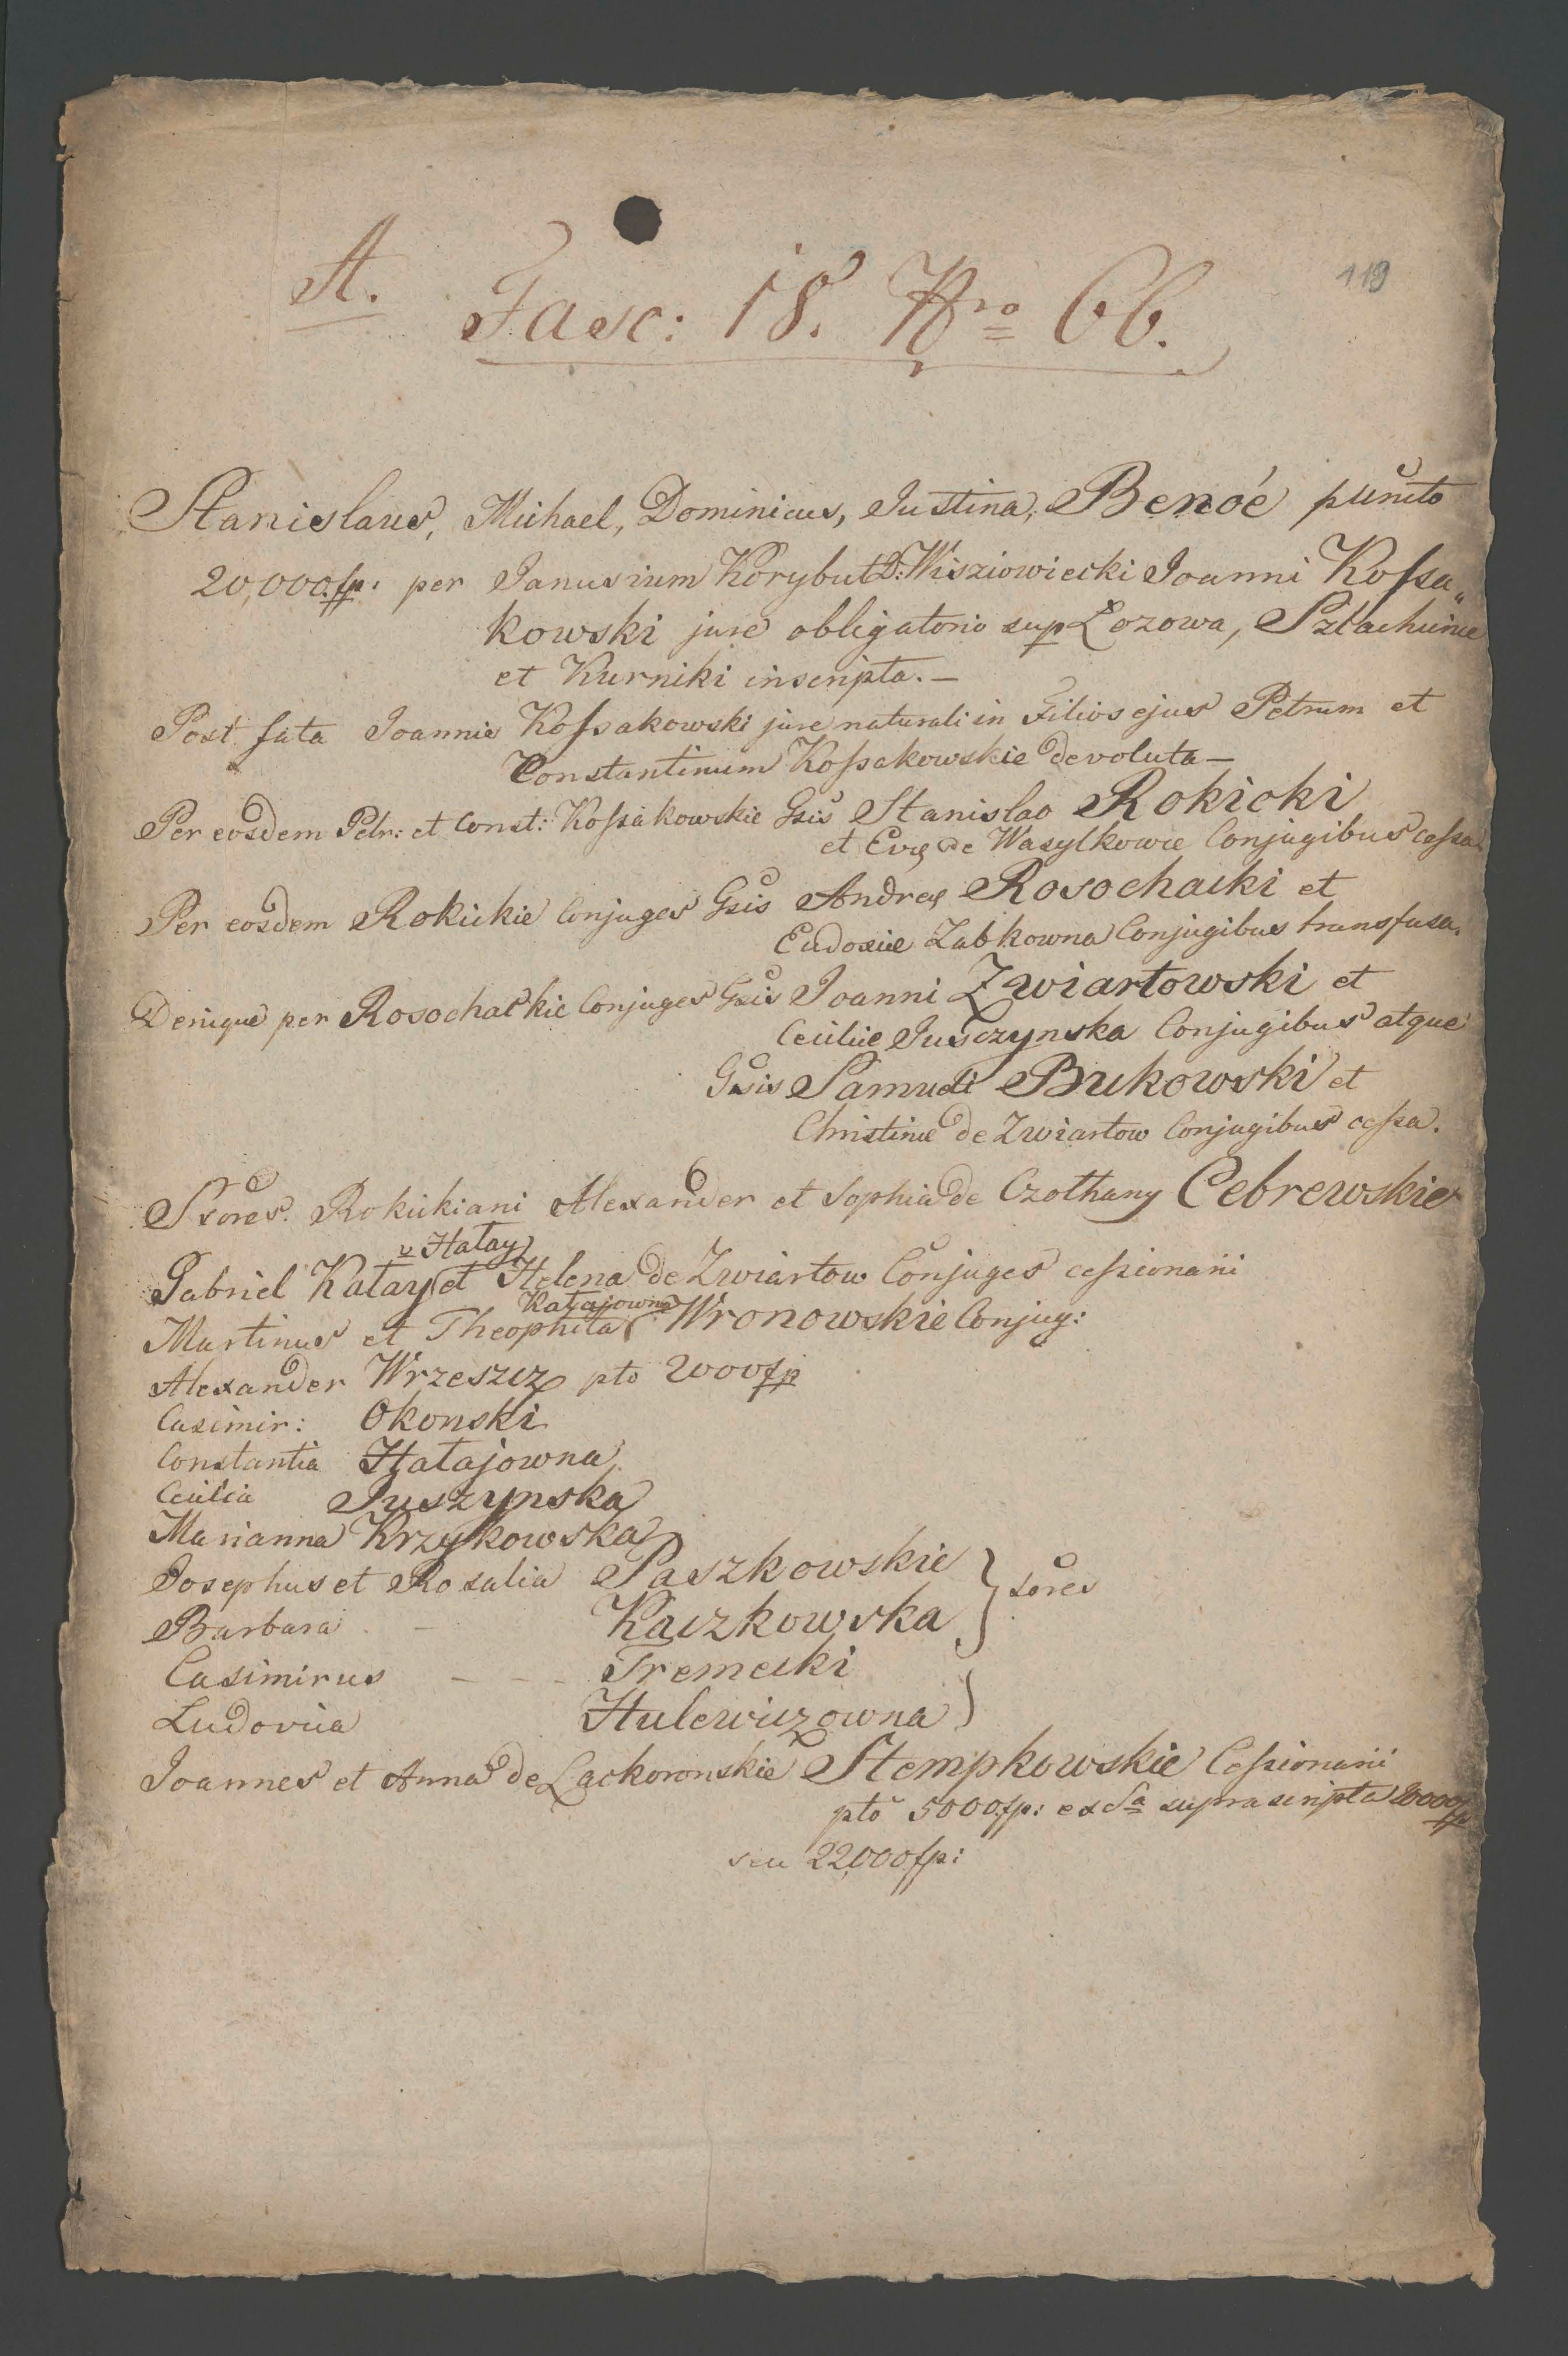 119
A. Fasc: 18. Nro 66.
Stanislaus, Michael, Dominicus, Justina, Benóe puncto
20,000 fp: per Janusium Korybut D: Wisziowiecki Joanni Kossa„
kowski jure obligatorio sup Łozowa, Szlachcince
et Kurniki inscripta. —
Post fata Joannis Kossakowski jure naturali in Filios ejus Petrum et
Constantinum Kossakowskie devoluta —
Per eosdem Petr: et Const: Kossakowskie Gsis Stanislao Rokicki
et Evę de Wasylkowce Conjugibus cessa
Per eosdem Rokickie Conjuges Gsis Andreę Rosochacki et
Eudoxiæ Zabkowna Conjugibus transfusa.
Denique per Rosochackie Conjuges Gsis Joanni Zwiartowski et
Ceciliæ Jusczynska Conjugibus atque
Gsis Samueli Bukowski et
Christinæ de Zwiartow Conjugibus cessa.
Sxores. Rokickiani Alexander et Sophia de Czołhany Cebrewskie
v Hałay
Gabriel Katay et Helena de Zwiartow Conjuges cessionarii
Katajowna
Martinus et Theophila Wronowskie Conjug:
Alexander Wrzeszcz pto 2000 fp
Casimir: Okonski
Constantia Hałajowna
Cecilia Juszynska
Marianna Krzykowska
Josephus et Rosalia Paszkowskie
Sores
Barbara - Kaczkowska
Casimirus - - - Tremecki
Ludovica Hulewiczowna
Joannes et Anna de Lackoronskie Stempkowskie Cessionarii
pto 5000 fp: ex Sa suprascripta 20000 fp
seu 22,000 fp: